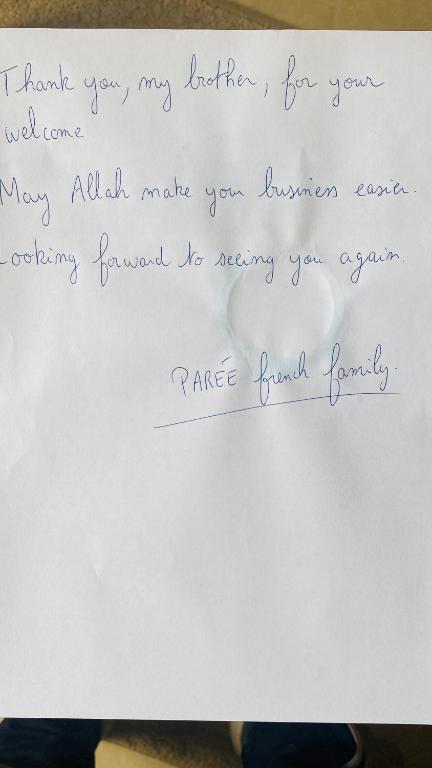 Thank you, my brother, for your
welcome
May Allah make your business easier.
Looking forward to seeing you again.
PARÉE french family.